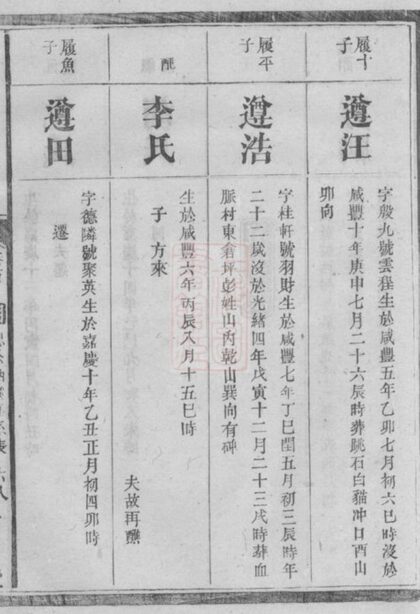 履十子
遵汪
字殷九號雲程生於咸五年乙卯七月初六巳時沒於
咸豐十年庚申七月二十六辰時葬跳石白貓冲口酉山
卯向
履平子
遵浩
字桂軒號羽財生於咸豐七年丁巳閏五月初三辰時年
二十二歲沒於光緒四年戊寅十二月二十三戌時葬血
脈村東翁坪彭姓山內乾山巽向有碑
酛
李氏
生於咸豐六年丙辰八月十五巳時
夫故再醮
子 方來
履魚子
遵田
字德隣號聚英生於嘉慶十年乙丑正月初四卯時
遷